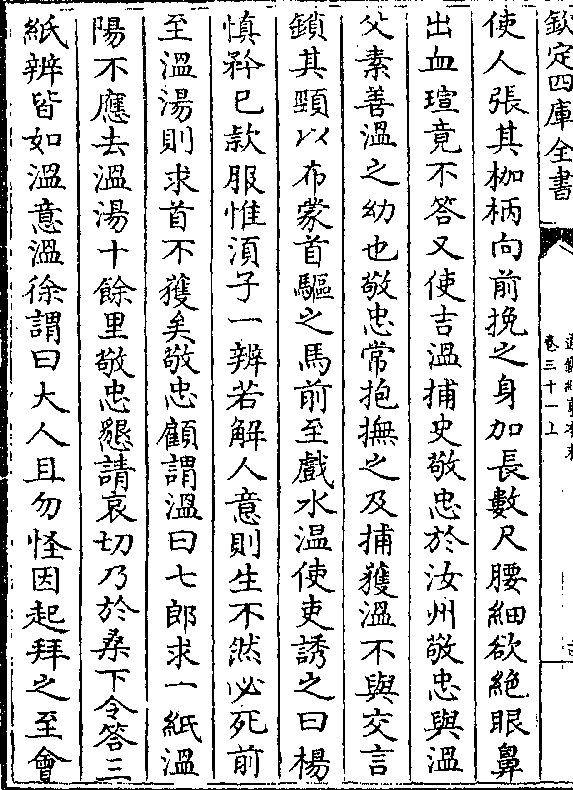 欽定四庫全書
通鑑紀事本末
卷三十一上
使人張其枷柄向前挽之身加長數尺腰細欲絶眼鼻
出血瑄竟不答又使吉溫捕史敬忠於汝州敬忠與溫
父素善溫之幼也敬忠常抱撫之及捕獲溫不與交言
鎖其頸以布蒙首驅之馬前至戲水温使吏誘之曰楊
慎矜已款服惟湏子一辨若解人意則生不然必死前
至溫湯則求首不獲矣敬忠顧謂溫曰七郎求一紙溫
陽不應去溫湯十餘里敬忠懇請哀切乃於桒下令答三
紙辨皆如溫意溫徐謂曰大人且勿怪因起拜之至會